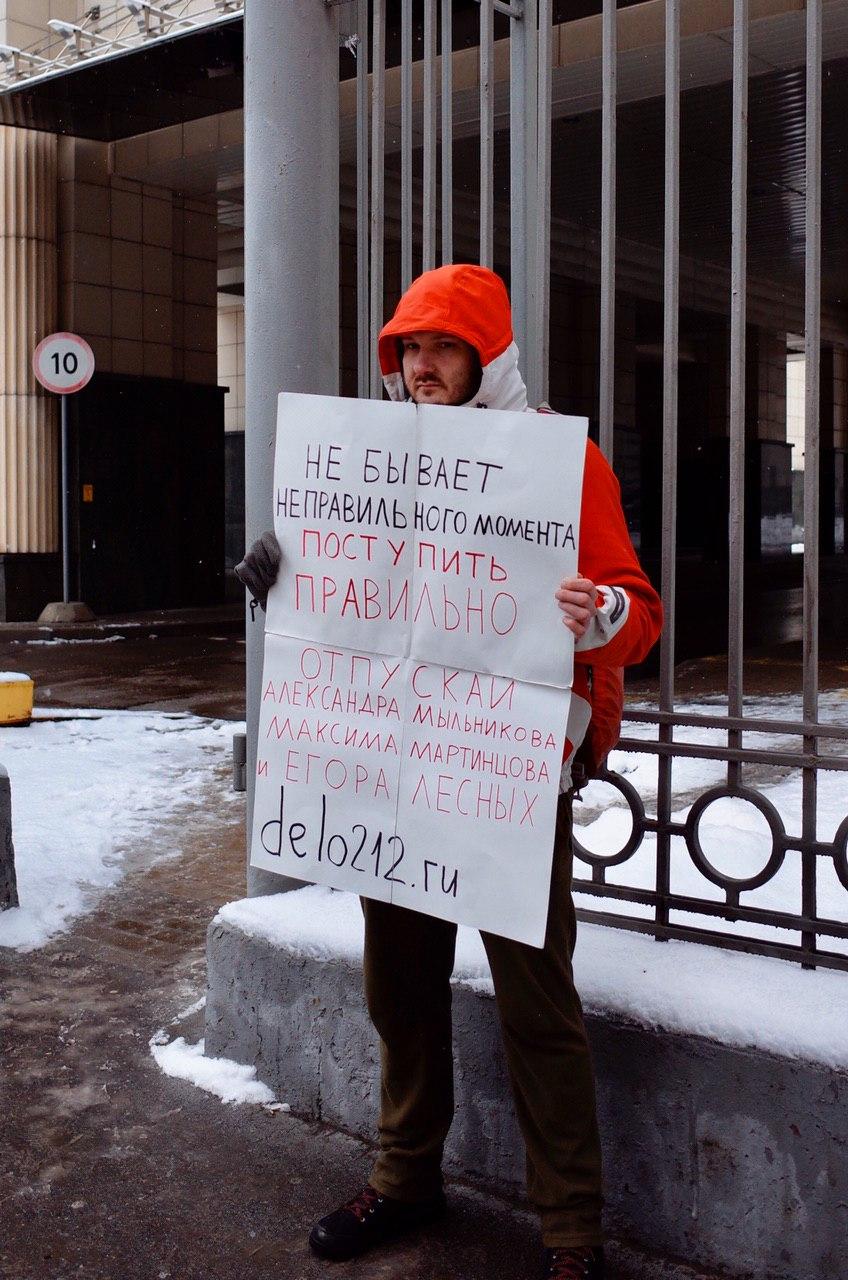 10
НЕ БЫВАЕТ
НЕПРАВИЛЬНОГО МОМЕНТА
ПОСТУПИТЬ
ПРАВИЛЬНО
ОТПУСКАЙ
АЛЕКСАНДРА МЫЛЬНИКОВА
МАКСИМА МАРТИНЦОВА
и ЕГОРА ЛЕСНЫХ
delo212.ru